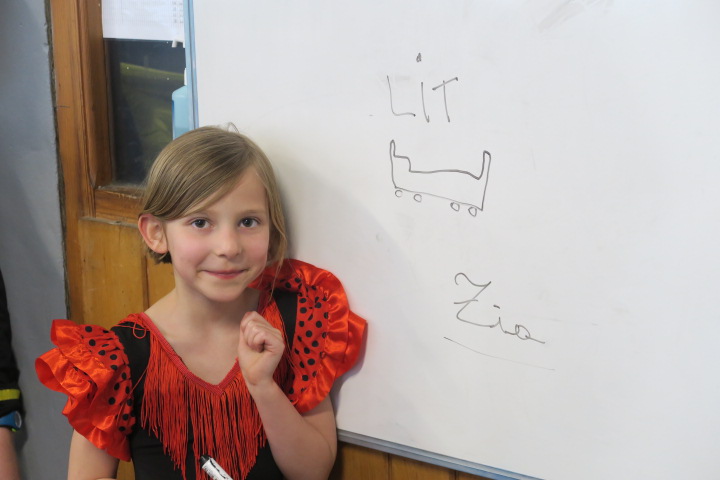 LiT
Zia